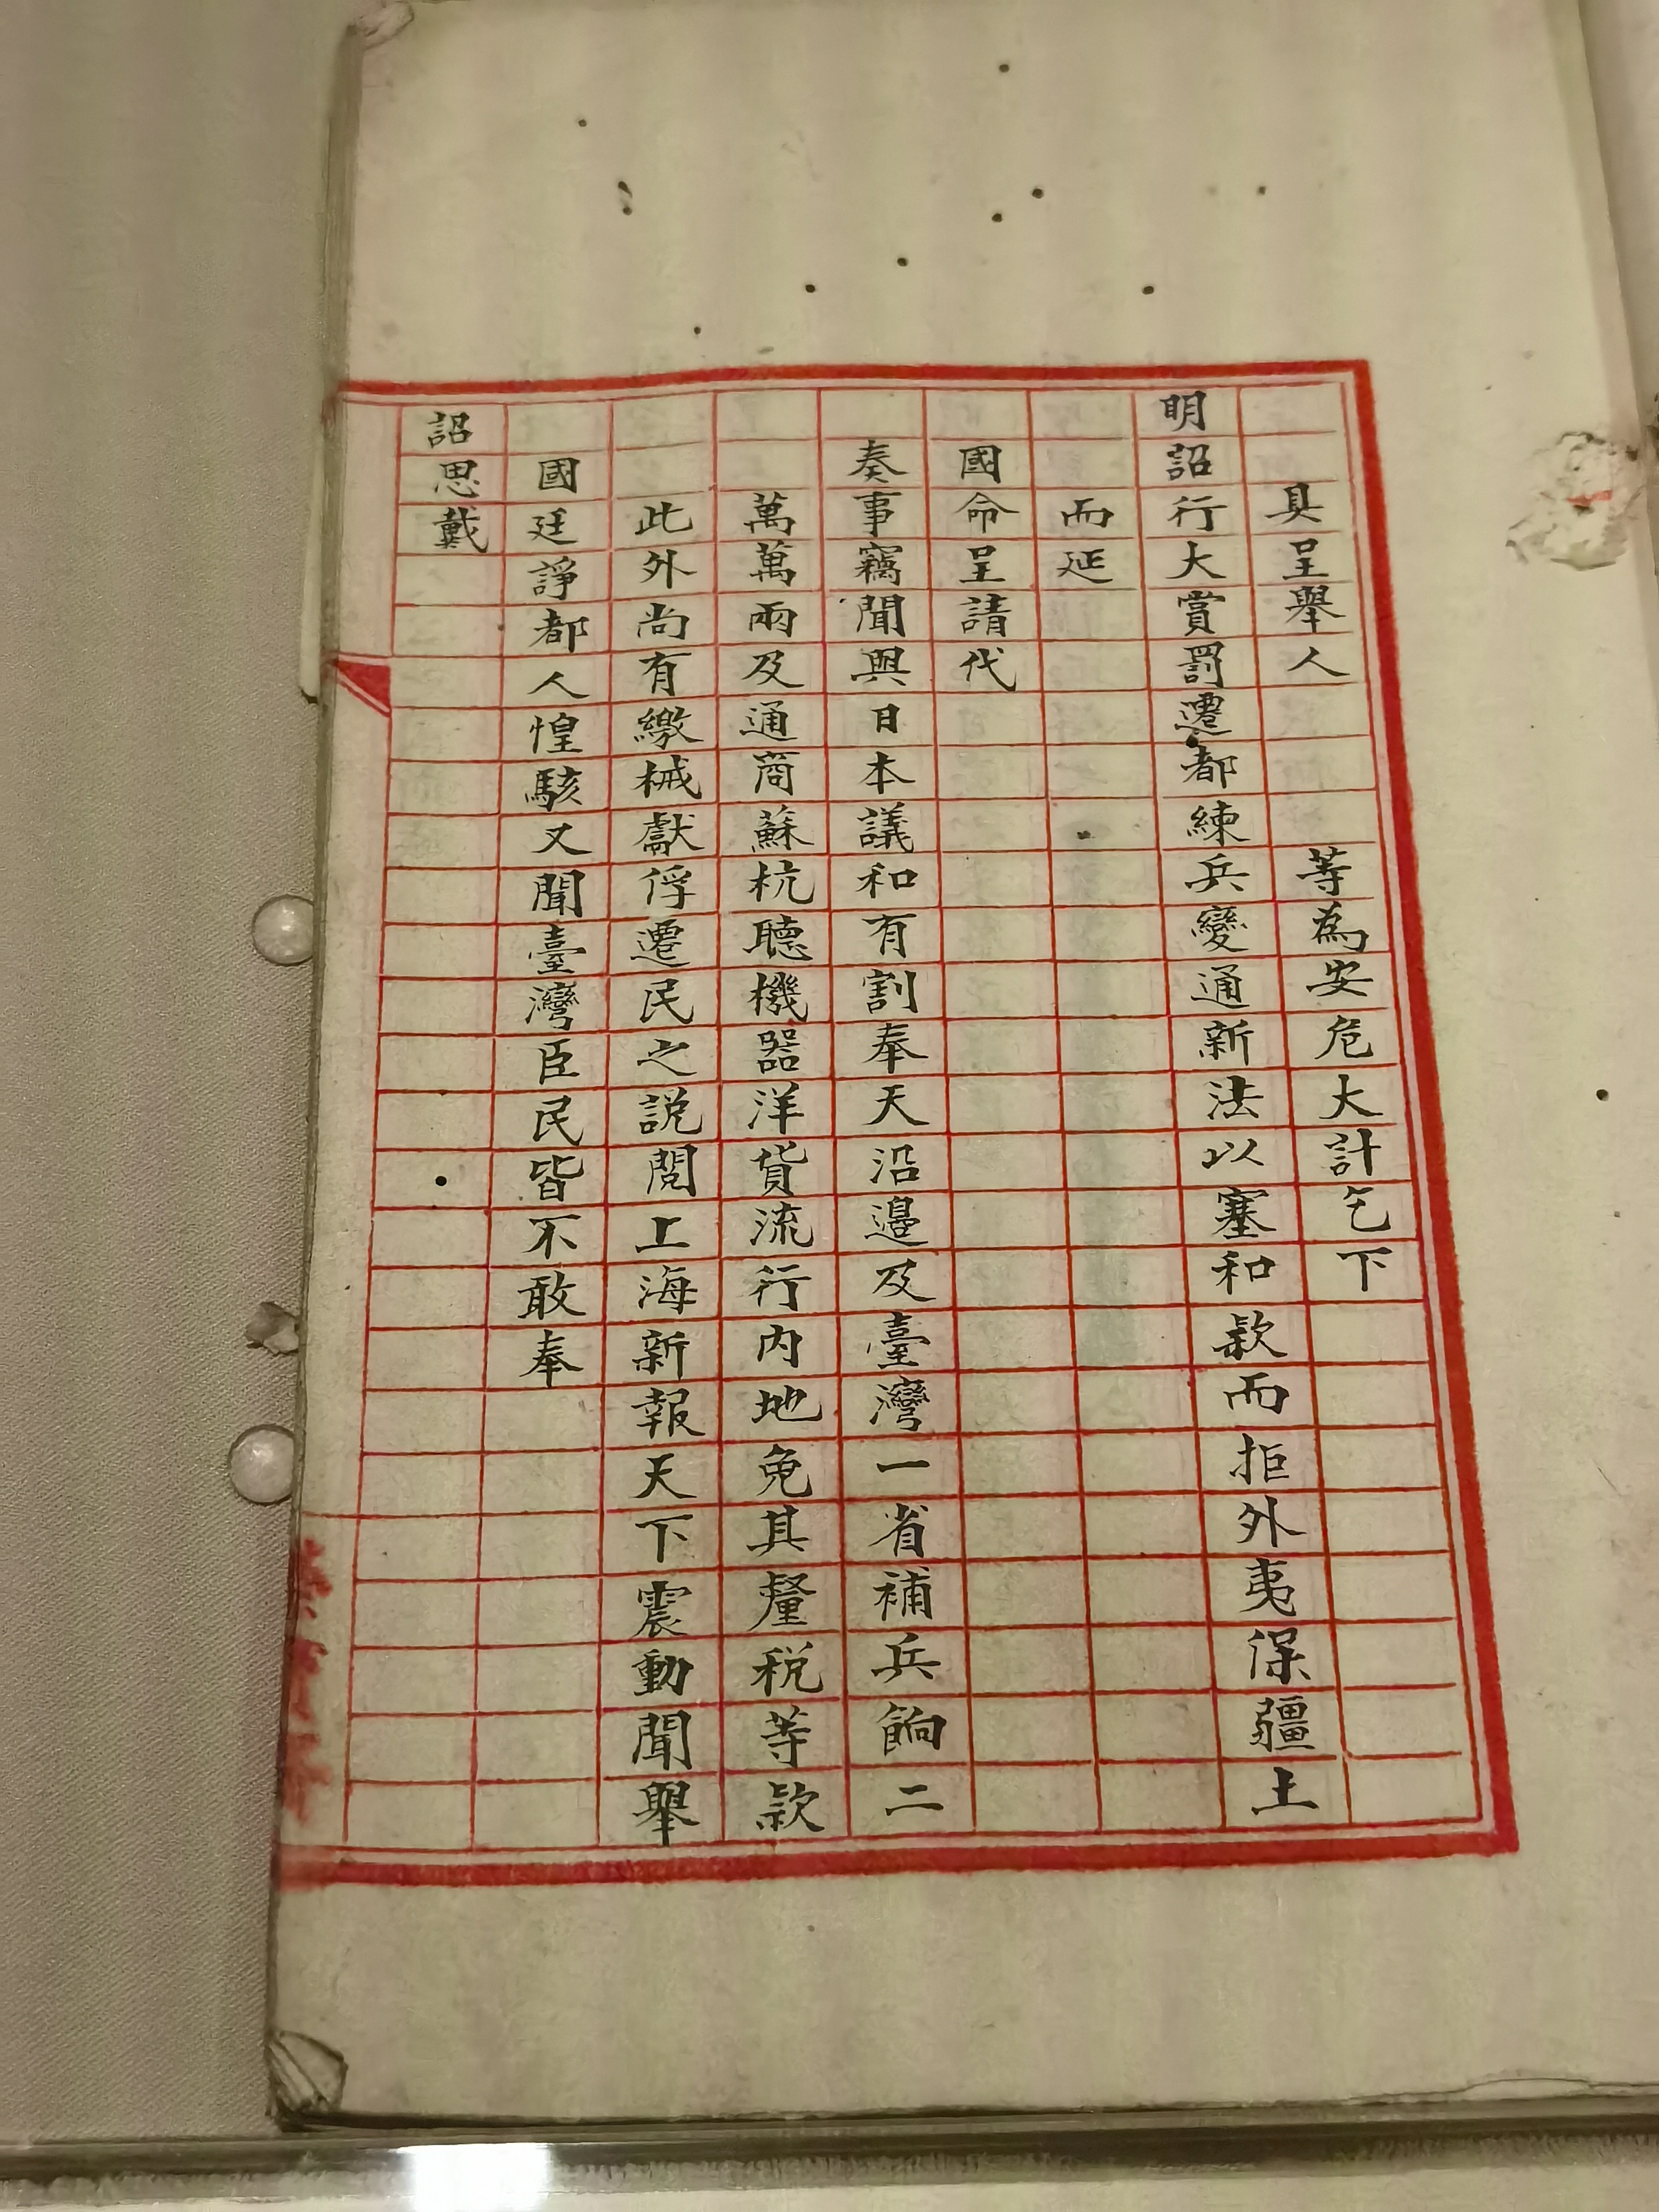 具呈舉人等為安危大計乞下
明詔行大賞罰遷都練兵變通新法以塞和款而拒外夷保疆土
而延
國命呈請代
奏事竊聞與日本議和有割奉天沿邊及臺灣一省補兵餉二
萬萬兩及通商蘇杭聽機器洋貨流行內地免其釐稅等款
此外尚有繳械獻俘遷民之說閱上海新報天下震動聞舉
國廷諍都人惶駭又聞臺灣臣民皆不敢奉
詔思戴